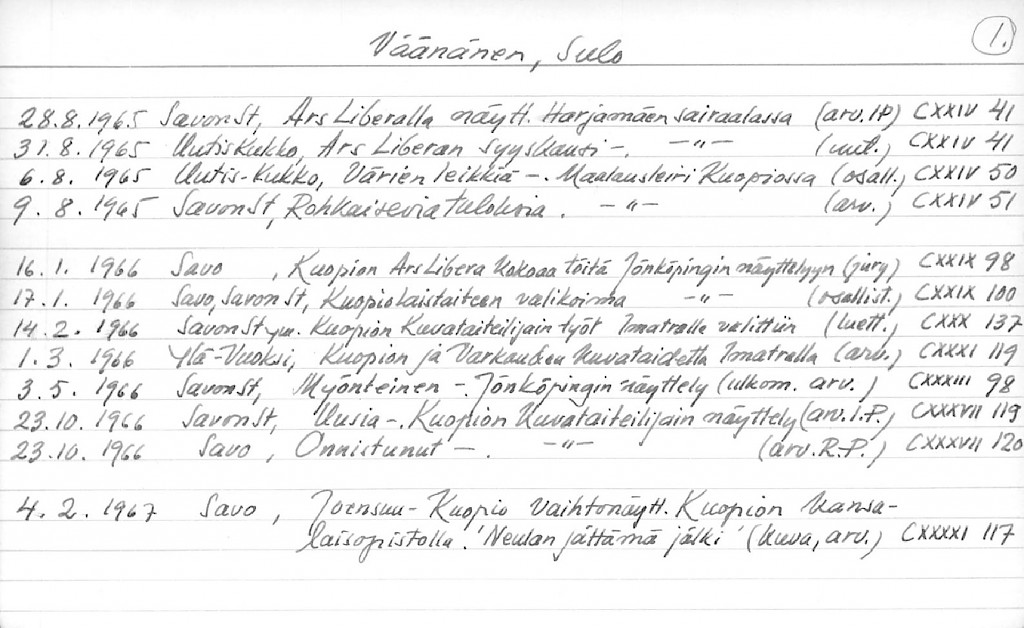 1.
Väänänen, Sulo
28.8.1965 SavonSt, Ars Liberalla näytt. Harjamäen sairaalassa (arv. IP) CXXIV 41
31.8.1965 Uutiskukko, Ars Liberan syyskausi -. -"- (uut.) CXXIV 41
6.8. 1965 Uutis-Kukko, Värien leikkiä -. Maalausleiri Kuopiossa (osall.) CXXIV 50
9. 8. 1965 SavonSt, Rohkaisevia tuloksia. -"- (arv.) CXXIV 51
16.1. 1966 Savo, Kuopion Ars Libera kokoaa töitä Jönköpingin näyttelyyn (jury) CXXIX 98
17.1. 1966 Savo, SavonSt, Kuopiolaistaiteen valikoima -"- (osallist.) CXXIX 100
14.2. 1966 SavonSt ym. Kuopion Kuvataiteilijain työt Imatralle valittiin (luett.) CXXX 137
1.3. 1966 Ylä-Vuoksi, Kuopion ja Varkauden kuvataidetta Imatralla (arv.) CXXXI 119
3.5. 1966 SavonSt, Myönteinen -. Jönköpingin näyttely (ulkom. arv.) CXXXIII 98
23.10. 1966 SavonSt, Uusia -. Kuopion kuvataiteilijain näyttely (arv. I.P.) CXXXVII 119
23.10. 1966 Savo, Onnistunut -. -"- (arv. R.P.) CXXXVII 120
4.2. 1967 Savo, Joensuu-Kuopio vaihtonäytt. Kuopion kansa-
laisopistolla. 'Neulan jättämä jälki' (kuva, arv.) CXXXXI 117